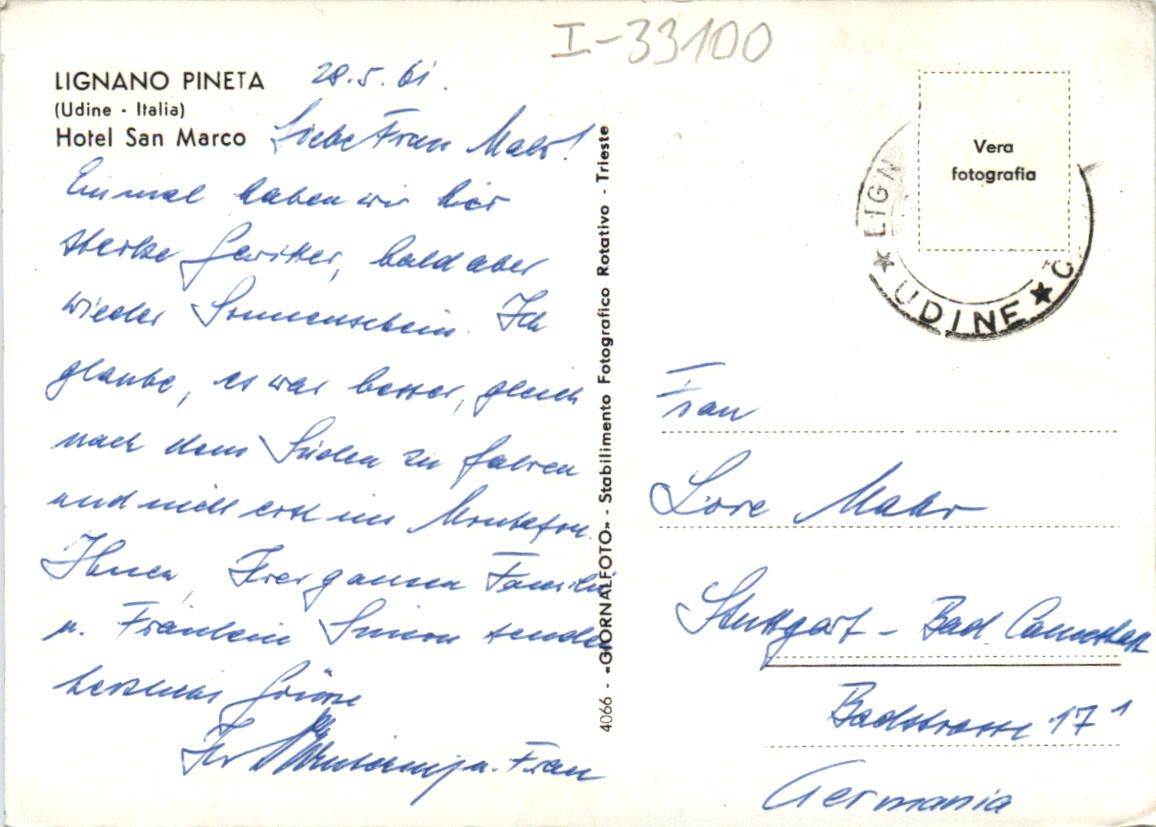 I-33100
LIGNANO PINETA
(Udine - Italia)
Hotel San Marco
28.5.61.
Liebe Frau Mahr!
Einmal haben wir hier
starke Gewitter, bald aber
wieder Sonnenschein. Ich
glaube, es war besser, gleich
nach dem Süden zu fahren
und nicht erst ins Montafon.
Ihnen, Ihrer ganzen Familie
u. Fräulein Simon sende
herzliche Grüsse
Ihr u. Frau
4066 - «GIORNALFOTO» - Stabilimento Fotografico Rotativo - Trieste
Vera
fotografia
★ LIGN
UDINE ★
Frau
Lore Mahr
Stuttgart - Bad Cannstatt
Badstrasse 17 1
Germania